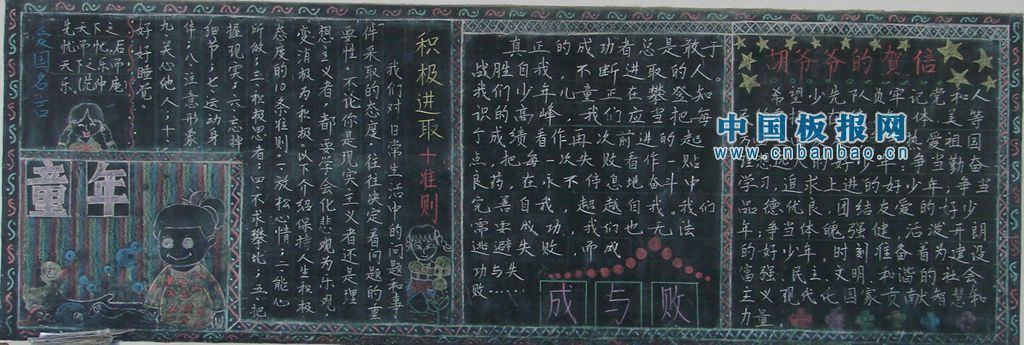 爱国名言
先天下之
忧而忧后
积极进取 十准则
我们对日常生活中的问题和事
件采取的态度,往往决定着问题的重
要性,不论你是现实主义者还是理
想主义者,都要学会化悲观为乐观
变消极为积极,以下介绍保持人生积极
态度的10条准则:一放松心情;二能心
所欲;三积极思考;四不求攀比;五把
握现实;六忘掉
细节;七运动身
件;八注意形象
九关心他人;十
好好睡觉。
童年
真正的成功者总是敢于
战胜自我,不断进取的人。
我们少年儿童正在攀登知
识的高峰,我们应当把每
个成绩看作再次前进的起
点,把每一次失败看作一贴
良药,在永不停息地奋斗中
完善自我,超越自我,我们
功与失
败……
成与败
胡爷爷的贺信
希望少先队员牢记党和人
中国板报网
www.cnbanbao.cn
学习,追求上进的好少年;争当
品德优良,团结友爱的好少
年;争当体魄强健,活泼开朗
的好少年,时刻准备着为建设
富强、民主、文明、和谐的社会
主义现代化国家贡献智慧和
力量。